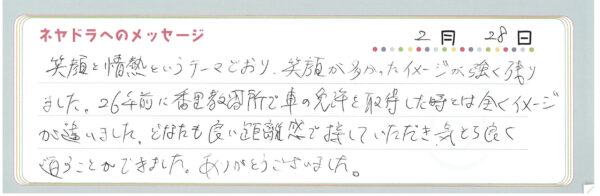 ネヤドラへのメッセージ
2月 28日
笑顔と情熱というテーマどおり、笑顔が多かったイメージが強く残り
ました。26年前に香里教習所で車の免許を取得した時とは全くイメージ
が違いました。どなたも良い距離感で接していただき気もち良く
通うことができました。ありがとうございました。